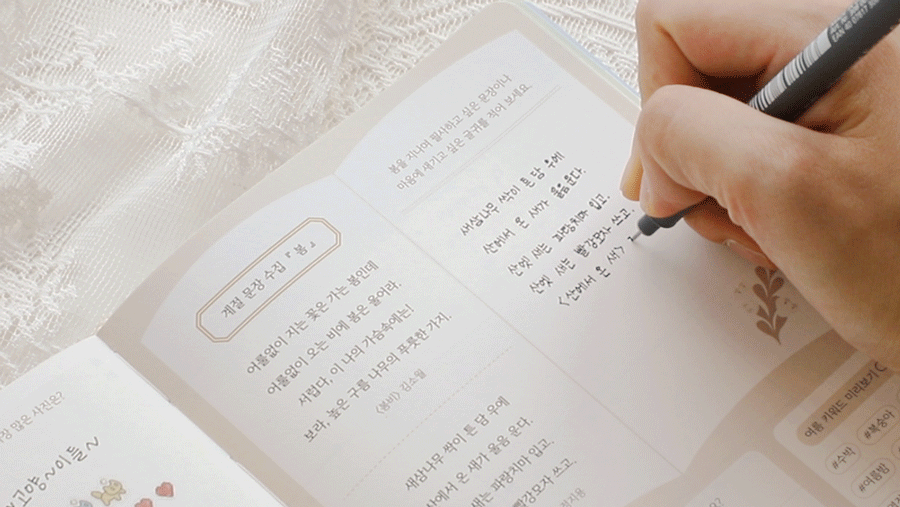 계절 문장 수집 『봄』
어룰없이 지는 꽃은 가는 봄인데
어룰없이 오는 비에 봄은 울어라.
서럽다, 이 나의 가슴속에는!
보라, 높은 구름 나무의 푸릇한 가지.
〈봄비〉 김소월
새삼나무 싹이 튼 담 우에
산에서 온 새가 울음 운다.
새는 파랑치마 입고.
빨강모자 쓰고.
봄을 지나며 필사하고 싶은 문장이나
마음에 새기고 싶은 글귀를 적어 보세요.
새삼나무 싹이 튼 담 우에
산에서 온 새가 울음 운다.
산엣 새는 파랑치마 입고.
산엣 새는 빨강모자 쓰고.
<산에서 온 새>
많은 사진은?
고양~이들~
여름 키워드 미리보기
#수박
#복숭아
#여름밤